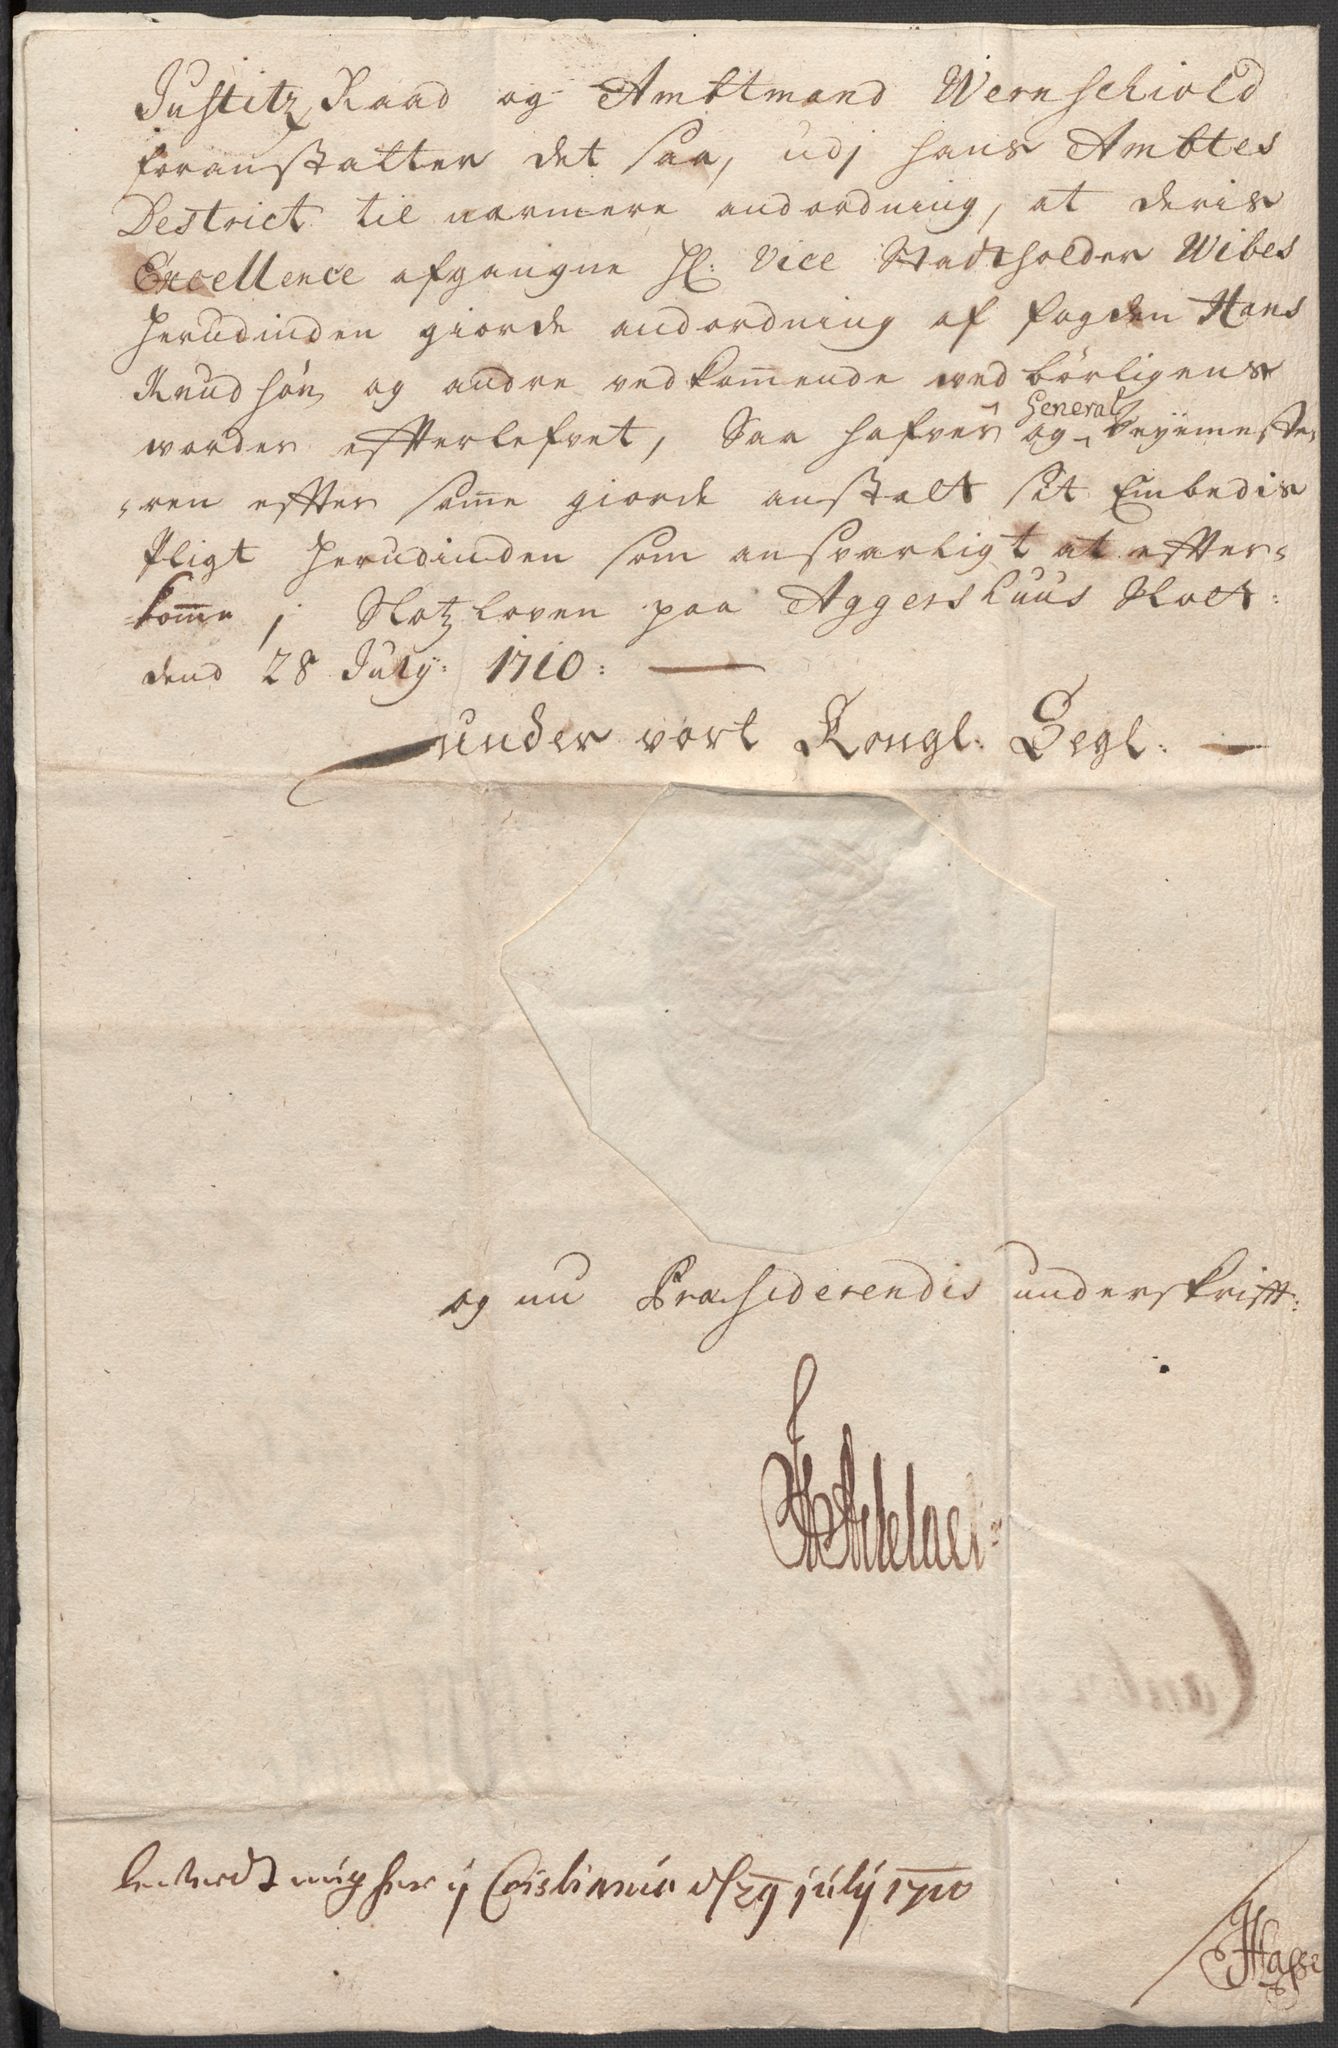 Justitz Raad og Ambtmand Wernschiold
foranstalter det saa, udj hans Ambtes
District til nærmere andordning, at deris
Excellence afgangne Hr: Vice Stadtholder Wibes
herudinden giorde andordning af fogden Hans
Knudsøn og andre vedkom̄ende ved børligens
vorder efterlefvet, Saa hafver og General Veyemeste-
-ren effter sam̄e giorde anstalt sit Embedis
Pligt herudinden som ansvarligt at effter-
kom̄e, Slotzloven paa Aggershuus Slott:
dend 28 July: 1710:
under vort Kongl: Segl:
og nu Præsiderendis underskrifft:
leveredt mig her y Cristiania d/ 29 julÿ 1710